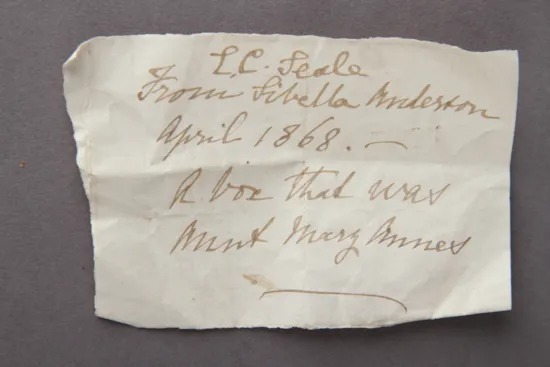 L.C. Seale
From Sibella Anderson
April 1868. —
A box that was
Aunt Mary Annes